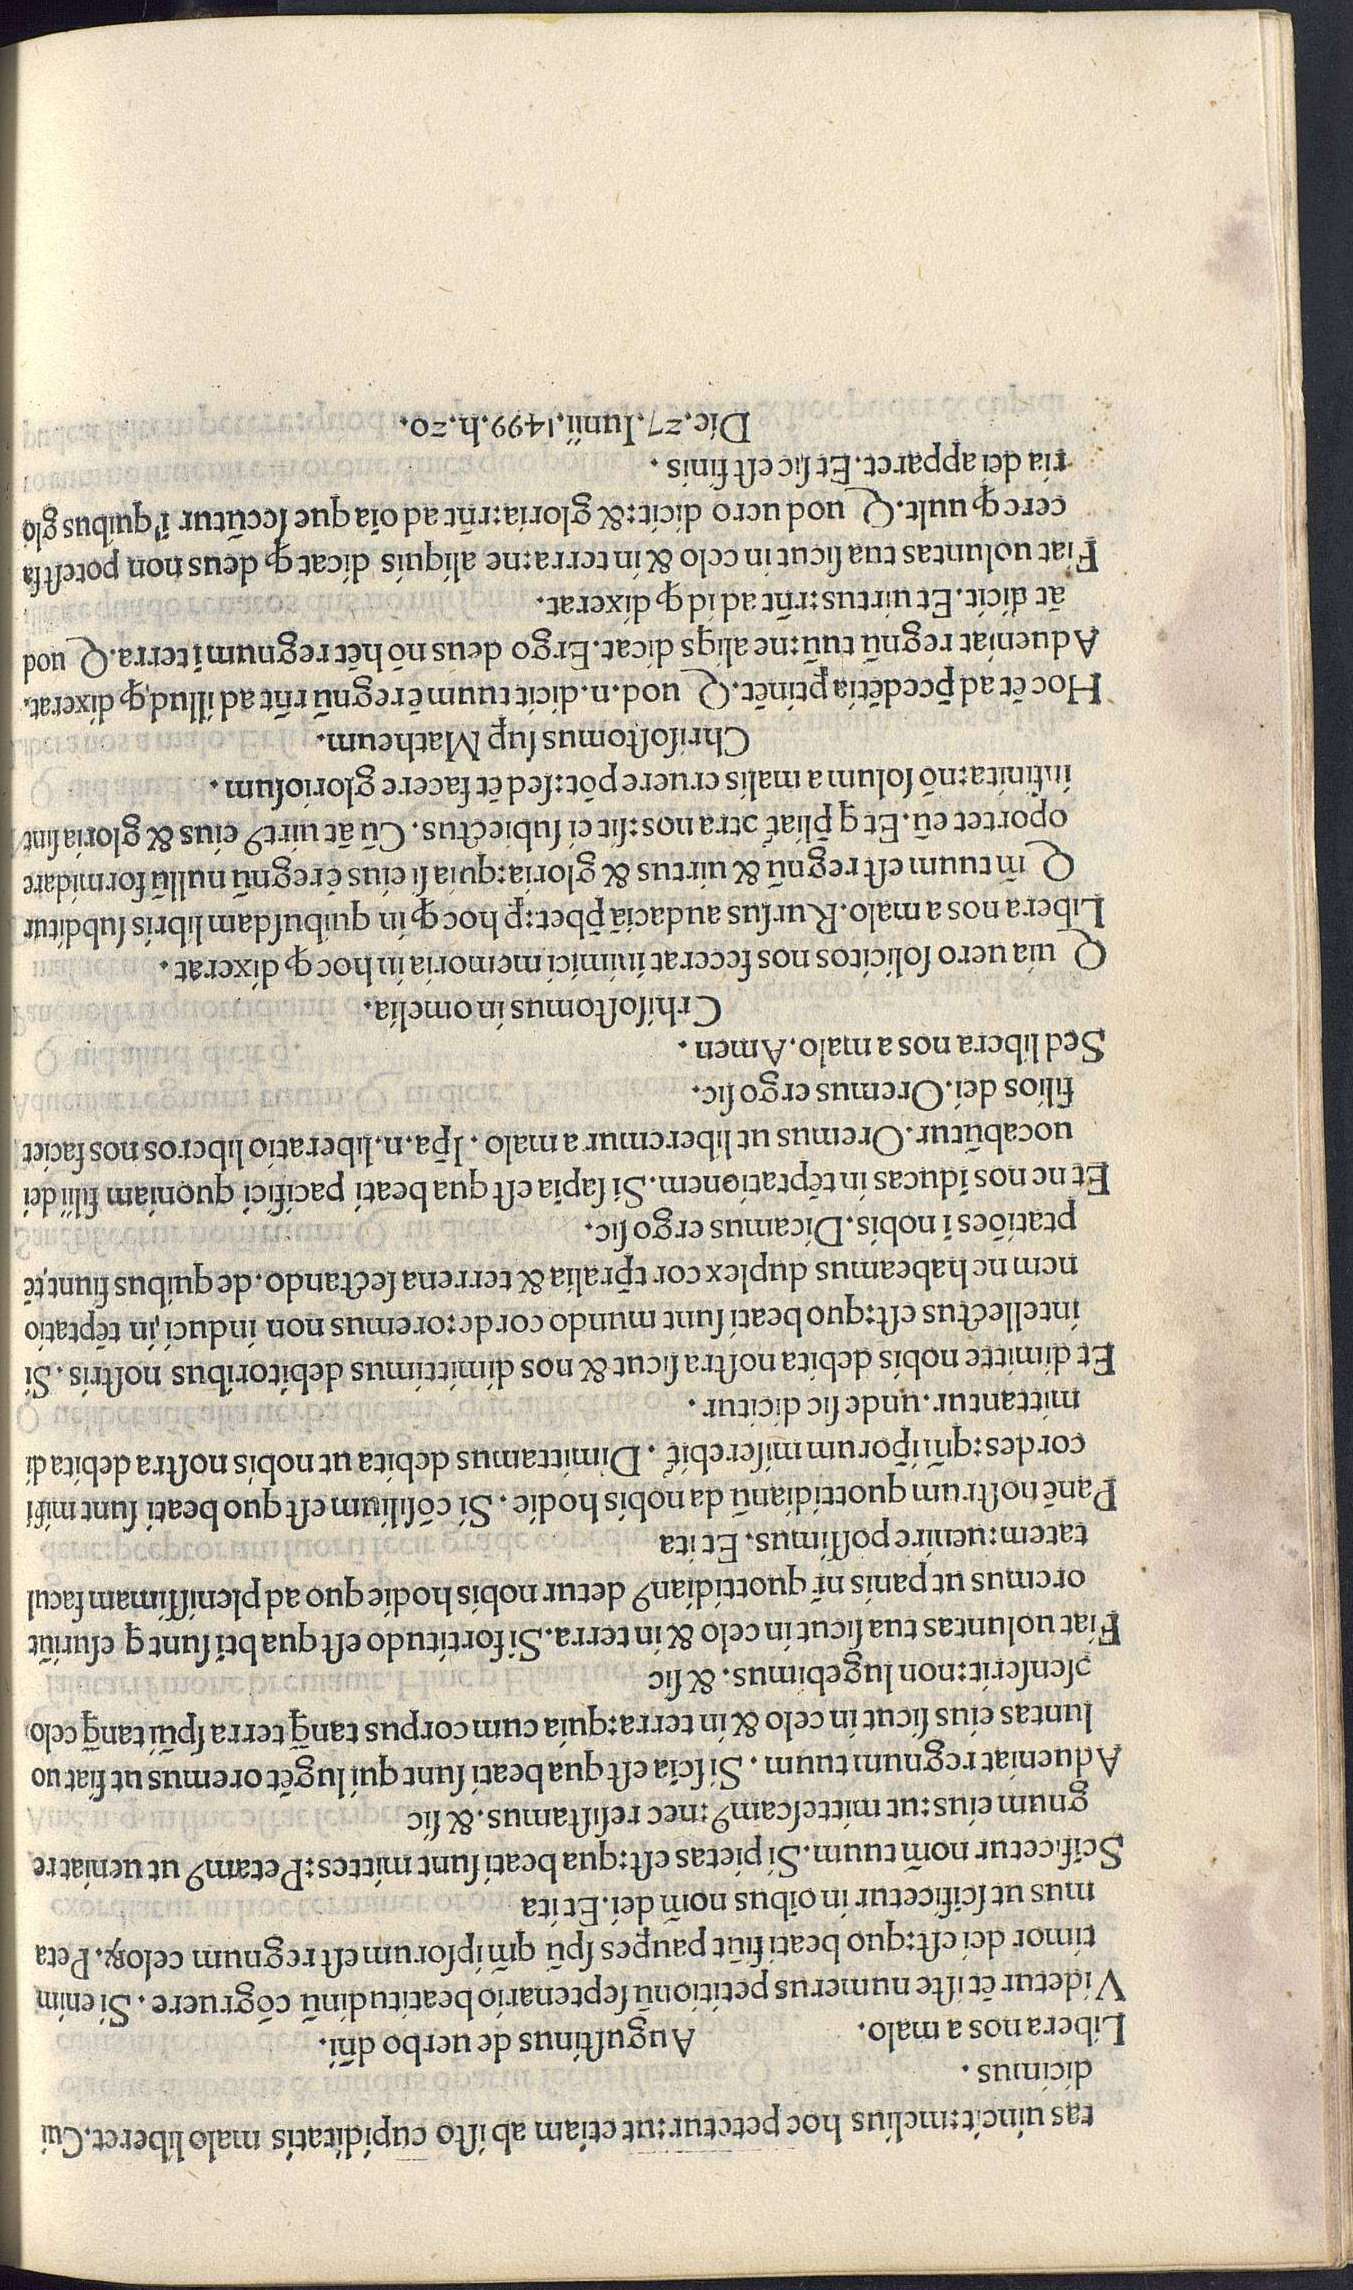 tas uincit:melius hoc petetur:ut etiam ab iſto cupiditatis malo liberet.Cui
dicimus .
Libera nos a malo. Auguſtinus de uerbo dñi.
Videtur ēt iſte numerus petitionū ſeptenario beatitudinū cōgruere . Si enim
timor dei eſt:quo beati fiūt pauꝑes ſpū qm̄ ipſorum eſt regnum celoꝝ. Peta
mus ut ſcificetur in oībus nom̄ dei.Et ita
Scificetur nom̄ tuum.Si pietas eſt:qua beati ſunt mittes:Petamꝰ ut ueniat re
gnum eius:ut mitteſcamꝰ:nec reſiſtamus.& ſic
Adueniat regnum tuum . Si ſcīa eſt qua beati ſunt qui lugēt oremus ut fiat uo
luntas eius ſicut in celo & in terra:quia cum corpus tanq̄ terra ſpūi tanq̄ celo
ↄſenſerit:non lugebimus. & ſic
Fiat uoluntas tua ſicut in celo & in terra.Si fortitudo eſt qua bti ſunt q eſuriūt
oremus ut panis nr̄ quottidianꝰ detur nobis hodie quo ad pleniſſimam facul
tatem:uenire poſſimus. Et ita
Panē noſtrum quottidianū da nobis hodie . Si cōſilium eſt quo beati ſunt miſi
cordes:qm̄ ip̄orum miſerebit̄ . Dimittamus debita ut nobis noſtra debita di
mittantur.unde ſic dicitur .
Et dimitte nobis debita noſtra ſicut & nos dimittimus debitoribus noſtris . Si
intellectus eſt:quo beati ſunt mundo corde:oremus non induci in tēptatio
nem ne habeamus duplex cor tp̄ralia & terrena ſectando.de quibus fiunt tē
ptatiōes ī nobis.Dicamus ergo ſic.
Et ne nos īducas in tēptationem.Si ſapīa eſt qua beati pacifici quoniam filii dei
uocabūtur.Oremus ut liberemur a malo . Ip̄a.n.liberatio liberos nos faciet
filios dei.Oremus ergo ſic.
Sed libera nos a malo.Amen .
Crhiſoſtomus in omelia.
Q uia uero ſolicitos nos fecerat inimici memoria in hoc ꝙ dixerat .
Libera nos a malo.Rurſus audaciā p̄bet:ꝑ hoc ꝙ in quibuſdam libris ſubditur
Q m̄ tuum eſt regnū & uirtus & gloria:quia ſi eius ē regnū nullū formidare
oportet eū.Et q p̄liat̄ ↄtra nos:ſit ei ſubiectus. Cū āt uirtꝰ eius & gloria ſint
infinita:nō ſolum a malis eruere pōt:ſed ēt facere glorioſum .
Chriſoſtomus ſuꝑ Matheum.
Hoc ēt ad p̄cedētia ꝑtinēt.Q uod.n.dicit tuum ē regnū rn̄t ad illud,ꝙ dixerat.
Adueniat regnū tuū:ne aliqs dicat.Ergo deus nō hēt regnum ī terra.Q uod
āt dicit.Et uirtus:rn̄t ad id ꝙ dixerat.
Fiat uoluntas tua ſicut in celo & in terra:ne aliquis dicat ꝙ deus non poteſt fa
cere ꝙ uult.Q uod uero dicit:& gloria:rn̄t ad oīa que ſecūtur ī quibus glo
ria dei apparet.Et ſic eſt finis .
Die.27.Iunii.1499.h.20.